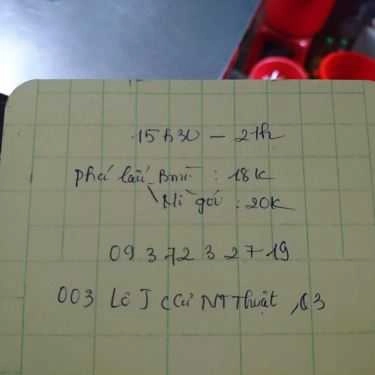 15h30 - 21h
Phá lấu - Bmì : 18K
Mì gói : 20K
09 3 72 3 27 19
003 Lô J CCư NTThuật, Q3